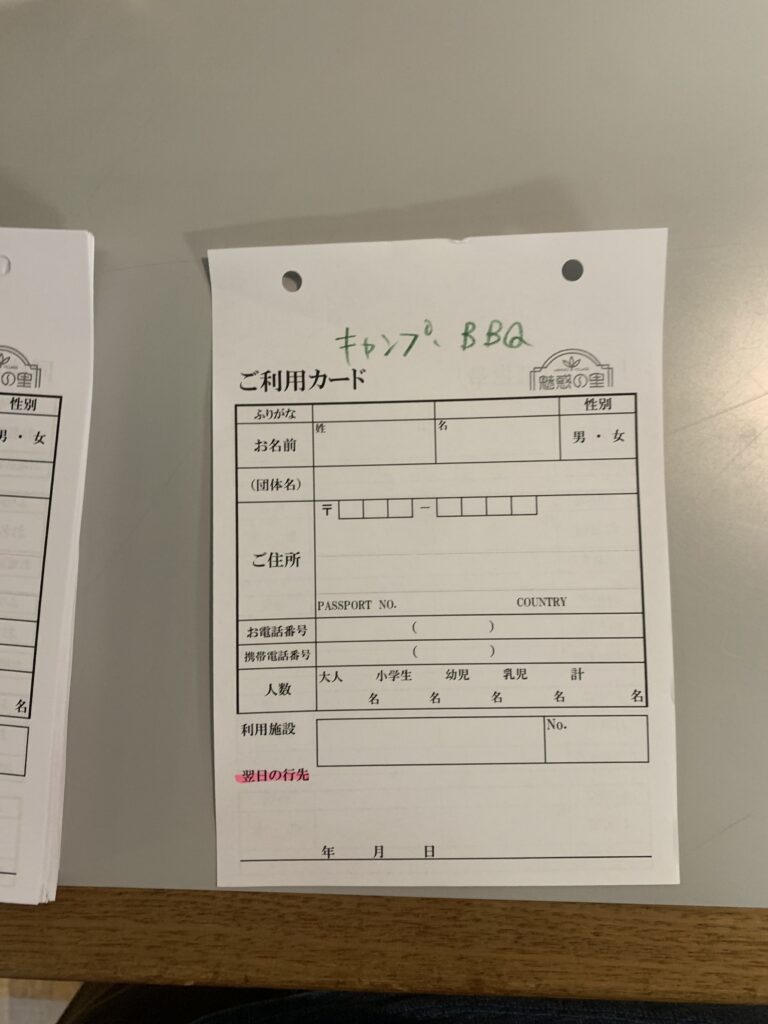 キャンプ、BBQ
ご利用カード
魅惑の里
ふりがな 性別
お名前 姓 名 男・女
(団体名)
ご住所 〒 -
PASSPORT NO. COUNTRY
お電話番号 ( )
携帯電話番号 ( )
人数 大人 小学生 幼児 乳児 計
名 名 名 名 名
利用施設 No.
翌日の行先
年 月 日
の里
性別
男・女
名